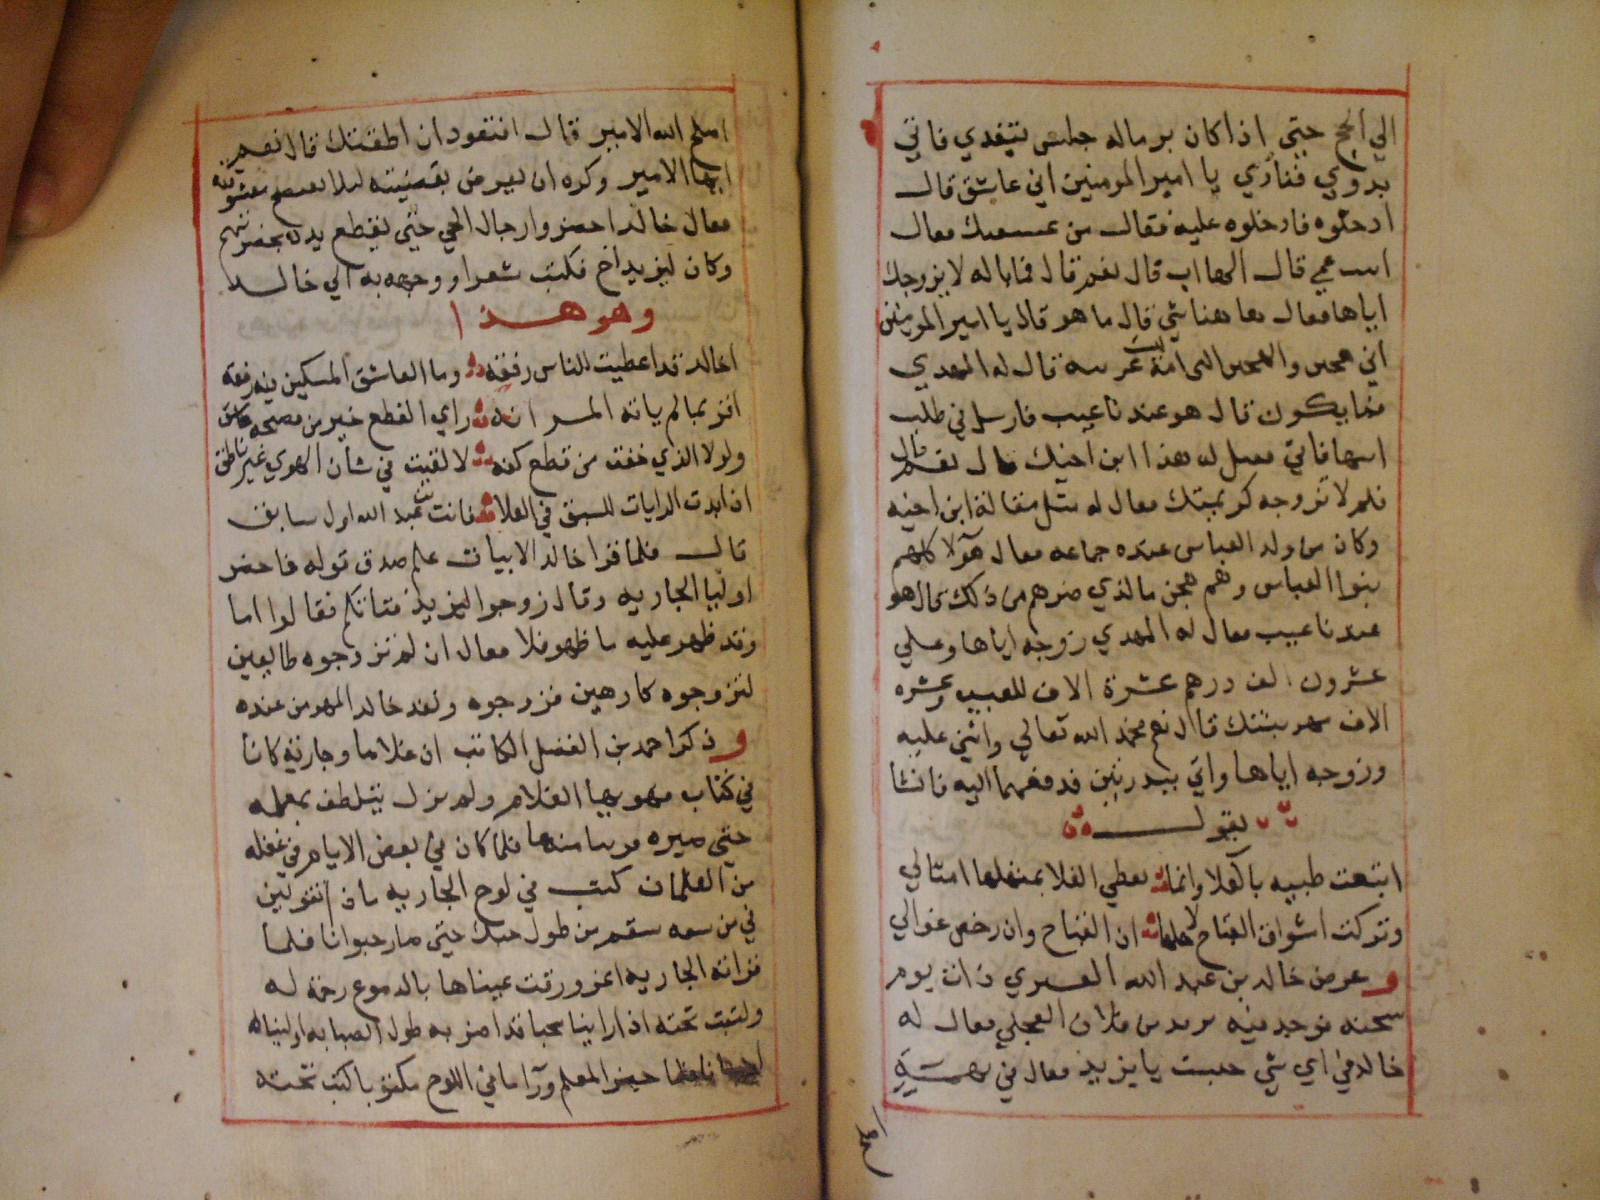 الي الحج حتي اذا كان برماله جلس يتغدي فاتي
بدوي فنادي يا امير المومنين اني عاشق قال
ادخلوه فادخلوه عليه فقال من عشيقتك فقال
ابنت عمي قال الها اب قال نعم قال فما باله لا يزوجك
اياها فقال هاهنا شي قال ما هو قال يا امير المومنين
اني هجين والهجين الذي امه ليست عربيه قال له المهدي
فما يكون قال هو عندنا عيب فارسل في طلب
ابيها فاتي فقيل له هذا ابن اخيك قال نعم قال
فلم لا تزوجه كريمتك فقال له مثل مقالة ابن اخيه
وكان من ولد العباس عنده جماعه فقال هولا كلهم
بنوا العباس وهم هجن ما الذي ضرهم من ذلك قال هو
عندنا عيب فقال له المهدي زوجه اياها وعلي
عشرون الف درهم عشرة الاف للعيب وعشره
الاف مهر بنتك قال نعم فحمد الله تعالي واثني عليه
وزوجه اياها واتي ببدرتين فدفعهما اليه فانشا
يقول
ابتعت ظبيه بالغلا وانما يعطي الغلا بمثلها امثالي
وتركت اسواق القباح لاهلها ان القباح وان رخص غوالي
و عرض خالد بن عبد الله القسري ذات يوم
سجنه فوجد فيه يزيد بن فلان العجلي فقال له
خالد في اي شي حبست يا يزيد فقال في تهمة
اصلح الله الامير قال افتعود ان اطلقتك قال نعم
ايها الامير وكره ان يعرض بقصيته ليلا يفضح معشوقته
فقال خالد احضروا رجال الحي حتي نقطع يده بحضرتهم
وكان ليزيد اخ فكتب شعرا ووجهه به الي خالد
وهو هذا
اخالد قد اعطيت للناس رفقة وما العاشق المسكين فيه رفقه
اقر بما لم ياته المر انه راي القطع خير من فضيحه عاشق
ولولا الذي خفت من قطع كفه لالفيت في شان الهوي غير ناطق
اذا بدت الرايات للسبق في العلا فانت بن عبد الله اول سابق
قال فلما قرا خالد الابيات علم صدق قوله فاحضر
اوليا الجاريه وقال زوجوا ليزيد فتاتكم فقالوا اما
وقد ظهر عليه ما ظهر فلا فقال ان لم تزوجوه طايعين
لتزوجوه كارهين فزوجوه ونقد خالد المهر من عنده
و ذكر احمد بن الفضل الكاتب ان غلاما وجارية كانا
في كتاب فهويها الغلام ولم يزل يتلطف بمعلمه
حتي صيره قريبا منها فلما كان في بعض الايام في غفله
من الغلمان كتب في لوح الجاريه ماذا تقولين
في من شفه سقم من طول حبك حتي صار حيرانا فلما
قراته الجاريه اغرورقت عيناها بالدموع رحمة له
وكتبت تحته اذا راينا محبا قد اضر به طول الصبابه اوليناه
احسانا فلما حضر المعلم وراما في اللوح مكتوبا كتب تحته